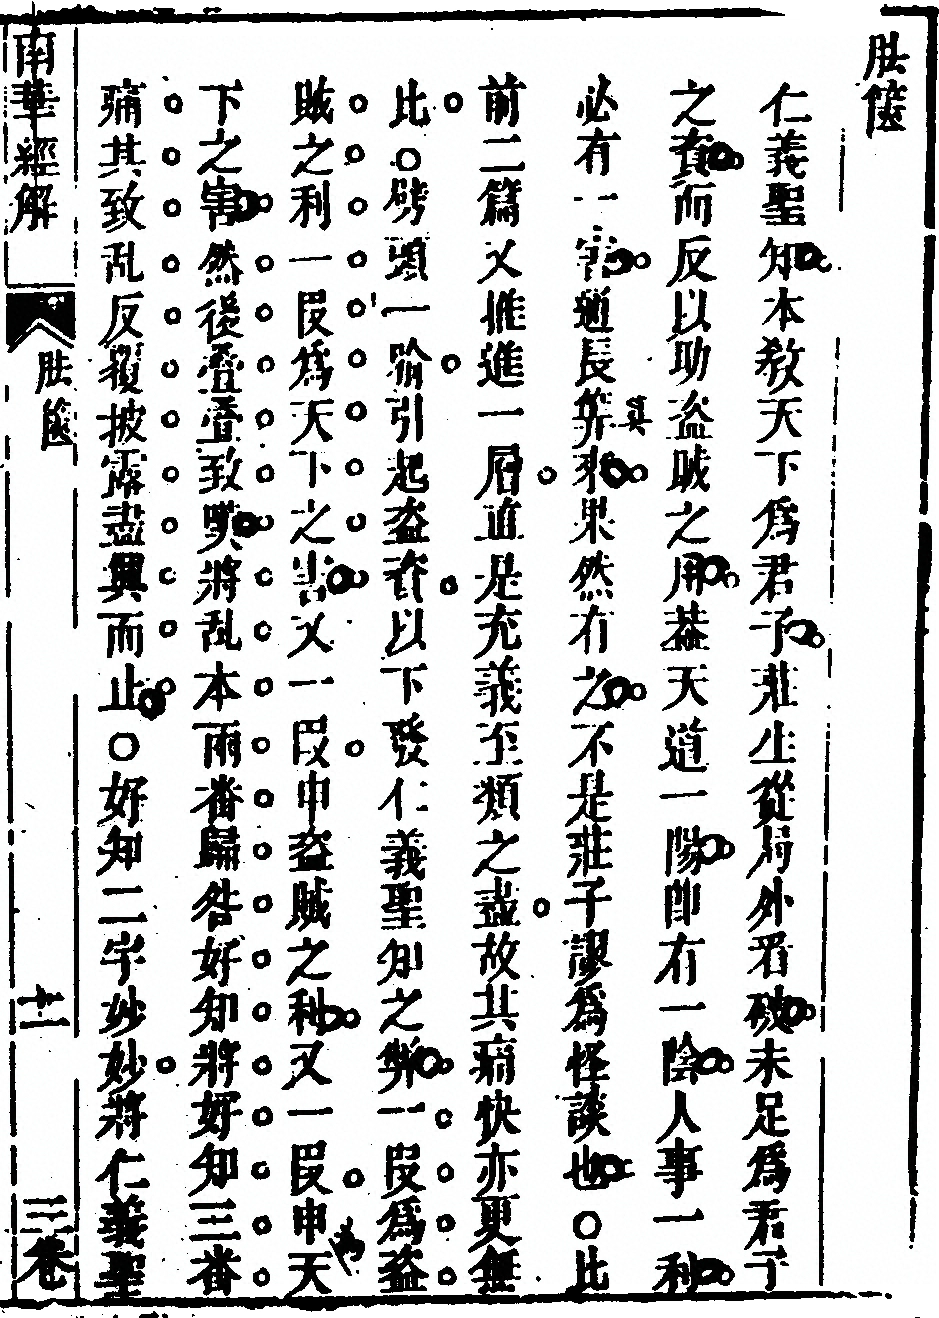 胠篋
仁義聖知本教天下為君子莊生從局外看破未足為君子
之資而反以助盗賊之用葢天道一陽即有一陰人事一利
必有一害通長筭來果然有之不是莊子謬為怪談也○比
前二篇又推進一層直是充義至類之盡故其痛快亦更無
比○劈頭一喻引起盗資以下發仁義聖知之弊一段為盗
賊之利一段為天下之害又一段申盗賊之利又一段申天
下之害然後疊疊致嘆將乱本兩番歸咎好知將好知三番
痛其致乱反覆披露盡興而止○好知二字妙妙將仁義聖
南華經解
胠篋
十二
三卷